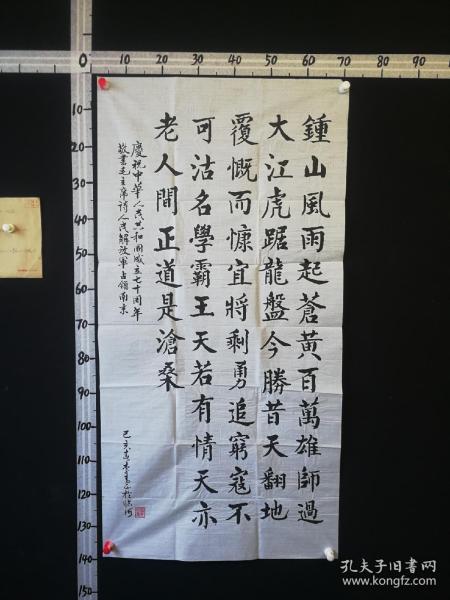 0 10 20 30 40 50 60 70
10
20
30
40
50
60
70
80
90
100
110
120
130
140
150
鍾山風雨起蒼黃百萬雄師過
大江虎踞龍盤今勝昔天翻地
覆慨而慷宜將剩勇追窮寇不
可沽名學霸王天若有情天亦
老人間正道是滄桑
慶祝中華人民共和國成立七十周年
敬書毛主席詩人民解放軍占領南京
己亥
孔夫子旧书网
www.kongfz.com